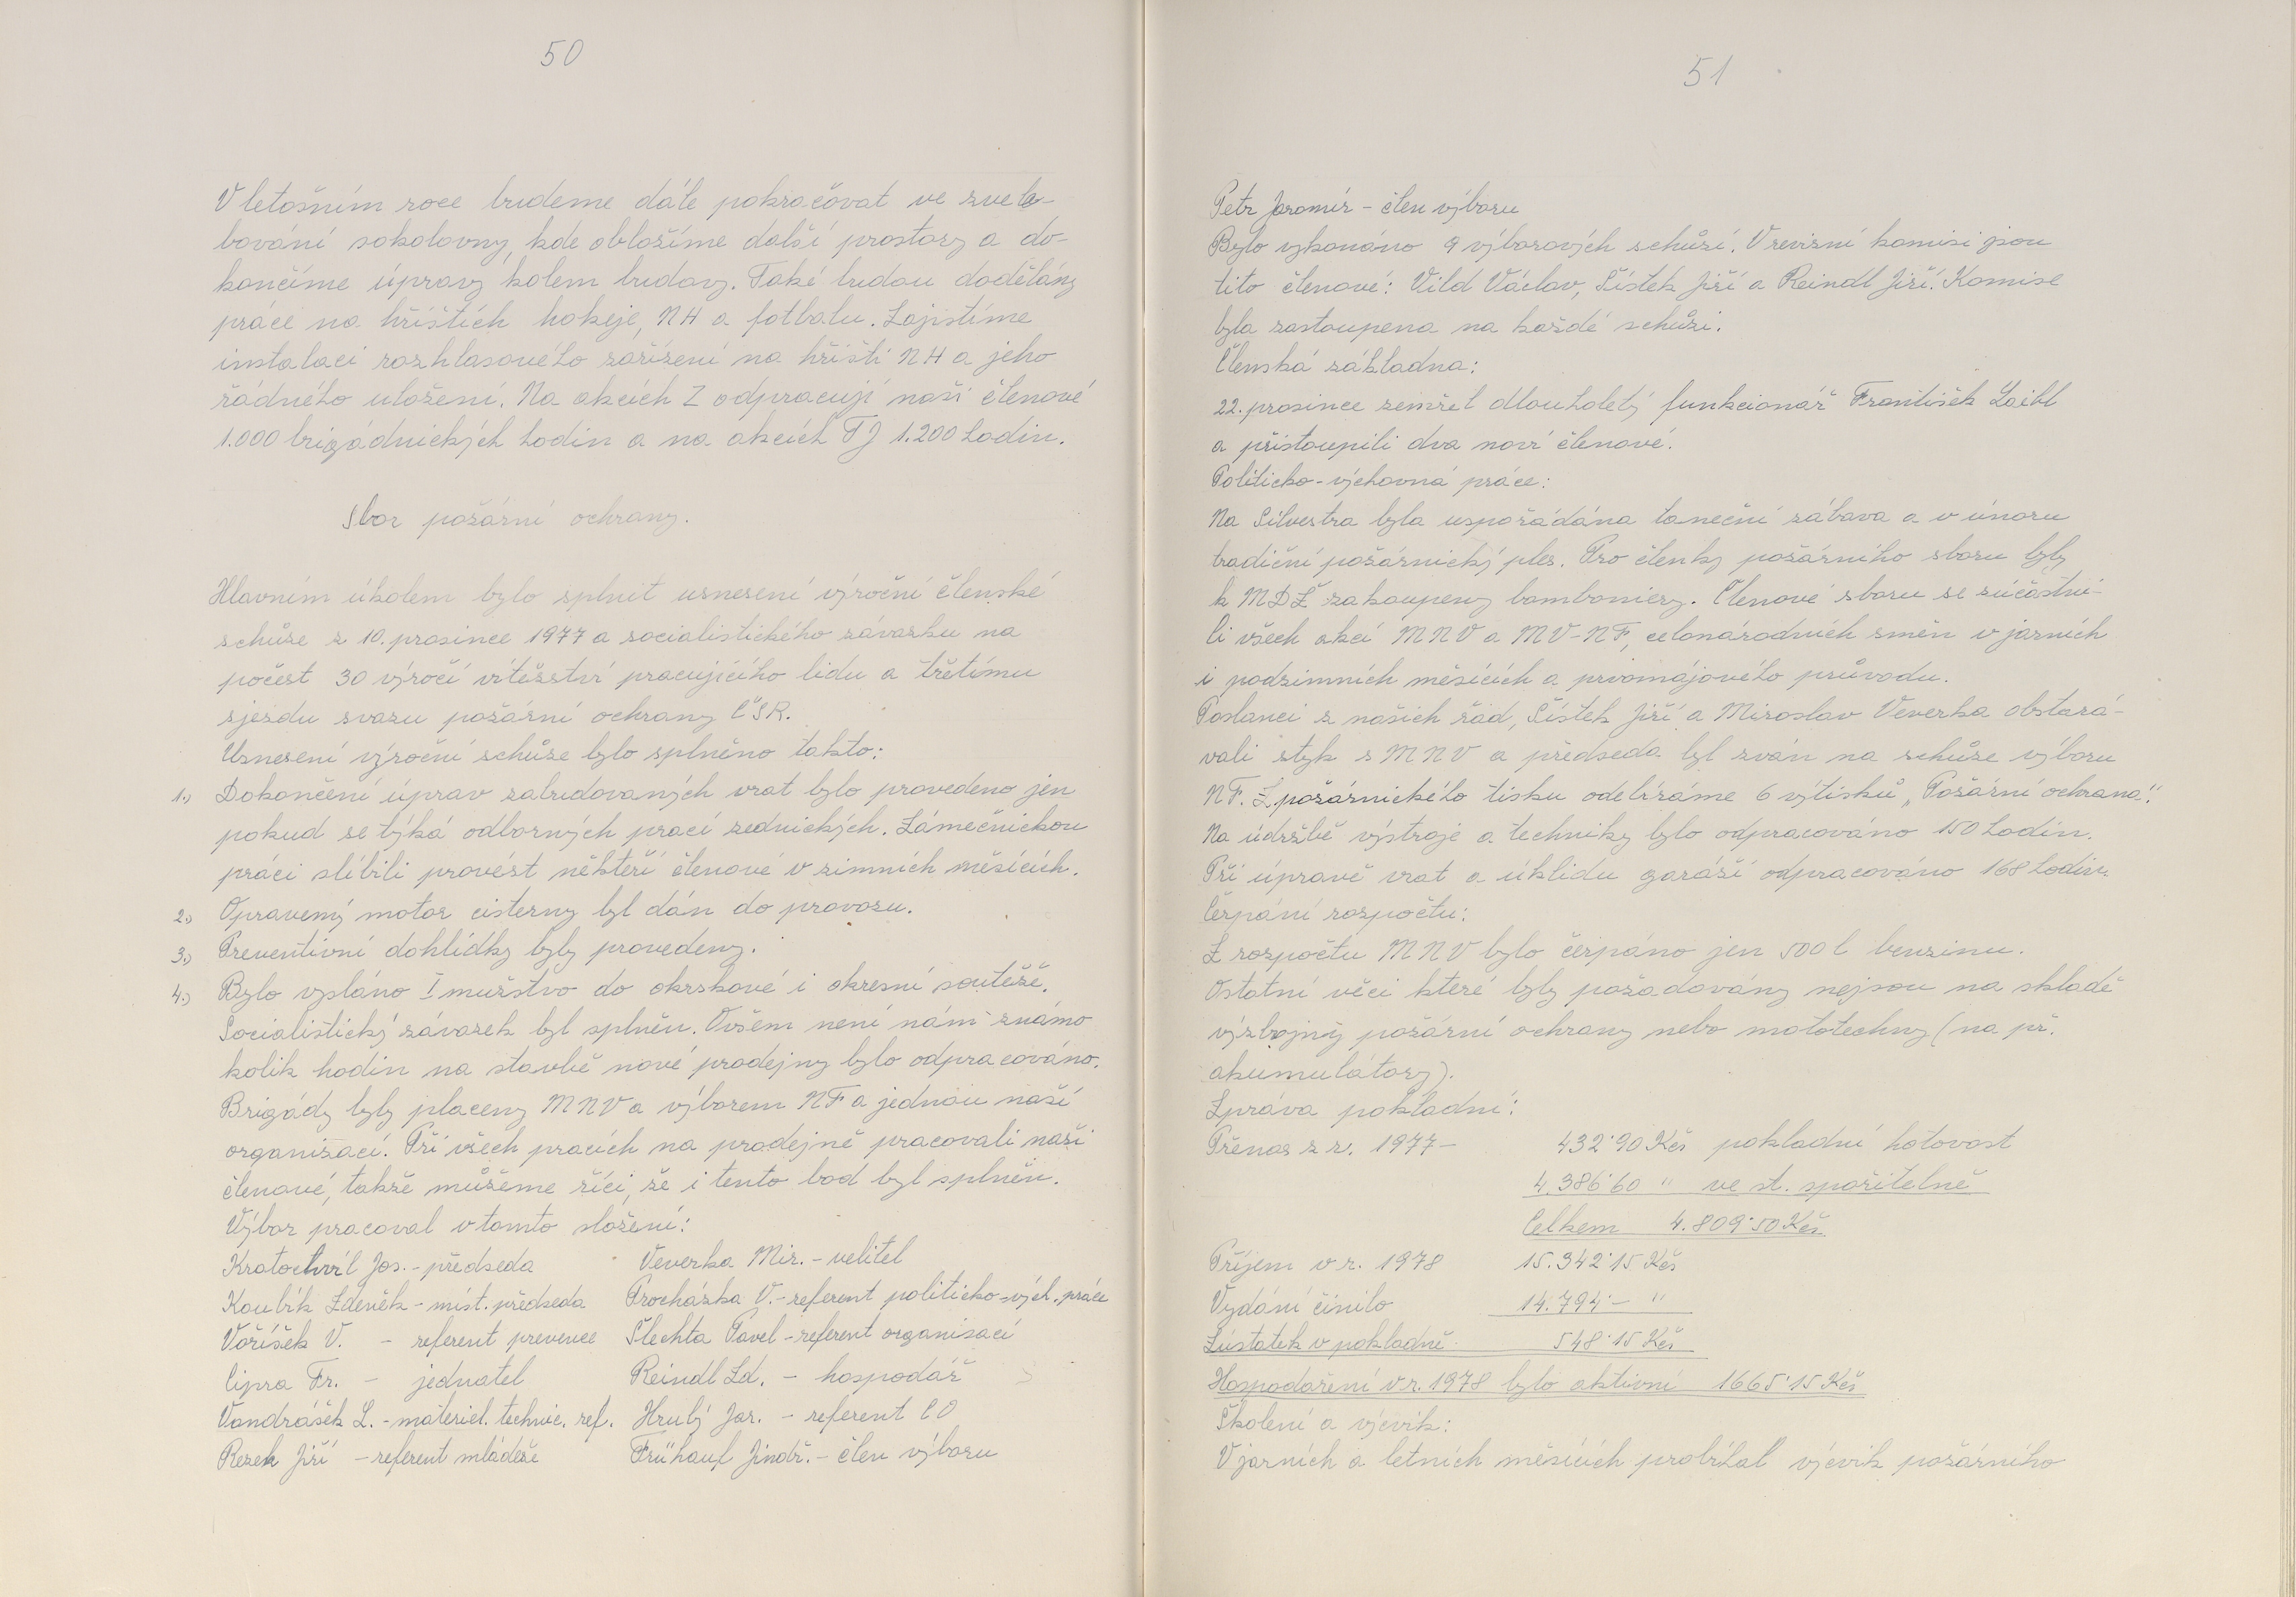 50
V letošním roce budeme dále pokračovat ve zvele-
bování sokolovny, kde obložíme další prostory a do-
končíme úpravy kolem budovy. Také budou dodělány
práce na hřištích hokeje, NH a fotbalu. Zajistíme
instalaci rozhlasového zařízení na hřišti NH a jeho
řádného uložení. Na akcích Z odpracují naši členové
1.000 brigádnických hodin a na akcích TJ 1.200 hodin.
Sbor požární ochrany.
Hlavním úkolem bylo splnit usnesení výroční členské
schůze z 10. prosince 1977 a socialistického závazku na
počest 30 výročí vítězství pracujícího lidu a třetímu
sjezdu svazu požární ochrany ČSR.
Usnesení výroční schůze bylo splněno takto:
1.) Dokončení úprav zabudovaných vrat bylo provedeno jen
pokud se týká odborných prací zednických. Zámečnickou
práci slíbili provést někteří členové v zimních měsících.
2.) Opravený motor cisterny byl dán do provozu.
3.) Preventivní dohlídky byly provedeny.
4.) Bylo vysláno I mužstvo do okrskové i okresní soutěže.
Socialistický závazek byl splněn. Ovšem není nám známo
kolik hodin na stavbě nové prodejny bylo odpracováno.
Brigády byly placeny MNV a výborem NF a jednou naší
organizací. Při všech pracích na prodejně pracovali naši
členové, takže můžeme říci, že i tento bod byl splněn.
Výbor pracoval v tomto složení:
Kratochvíl Jos. - předseda Veverka Mir. - velitel
Koubík Zdeněk - míst. předseda Procházka V. - referent politicko-vých. práce
Voříšek V. - referent prevence Šlechta Pavel - referent organisací
Cipra Fr. - jednatel Reindl Zd. - hospodář
Vondrášek L. - materiel. technic. ref. Hrubý Jar. - referent CO
Rezek Jiří - referent mládeže Frühauf Jindř. - člen výboru
51
Petr Jaromír - člen výboru
Bylo vykonáno 9 výborových schůzí. V revizní komisi jsou
tito členové: Vild Václav, Šístek Jiří a Reindl Jiří. Komise
byla zastoupena na každé schůzi.
Členská základna:
22. prosince zemřel dlouholetý funkcionář František Loibl
a přistoupili dva noví členové.
Politicko-výchovná práce:
Na Silvestra byla uspořádána taneční zábava a v únoru
tradiční požárnický ples. Pro členky požárního sboru byly
k MDŽ zakoupeny bomboniery. Členové sboru se zúčastni-
li všech akcí MNV a MV-NF, celonárodních směn v jarních
i podzimních měsících a prvomájového průvodu.
Poslanci z našich řad, Šístek Jiří a Miroslav Veverka obstará-
vali styk s MNV a předseda byl zván na schůze výboru
NF. Z požárnického tisku odebíráme 6 výtisků „Požární ochrana".
Na údržbě výstroje a techniky bylo odpracováno 150 hodin.
Při úpravě vrat a úklidu garáží odpracováno 168 hodin.
Čerpání rozpočtu:
Z rozpočtu MNV bylo čerpáno jen 500 l benzinu.
Ostatní věci které byly požadovány nejsou na skladě
výzbojny požární ochrany nebo mototechny (na př.
akumulátory).
Zpráva pokladní:
Přenos z r. 1977 - 432˙90 Kčs pokladní hotovost
4.386˙60 " ve st. spořitelně
Celkem 4.809˙50 Kčs
Příjem v r. 1978 15.342˙15 Kčs
Vydání činilo 14.794˙- "
Zůstatek v pokladně 548˙15 Kčs
Hospodaření v r. 1978 bylo aktivní 1665˙15 Kčs
Školení a výcvik:
V jarních a letních měsících probíhal výcvik požárního